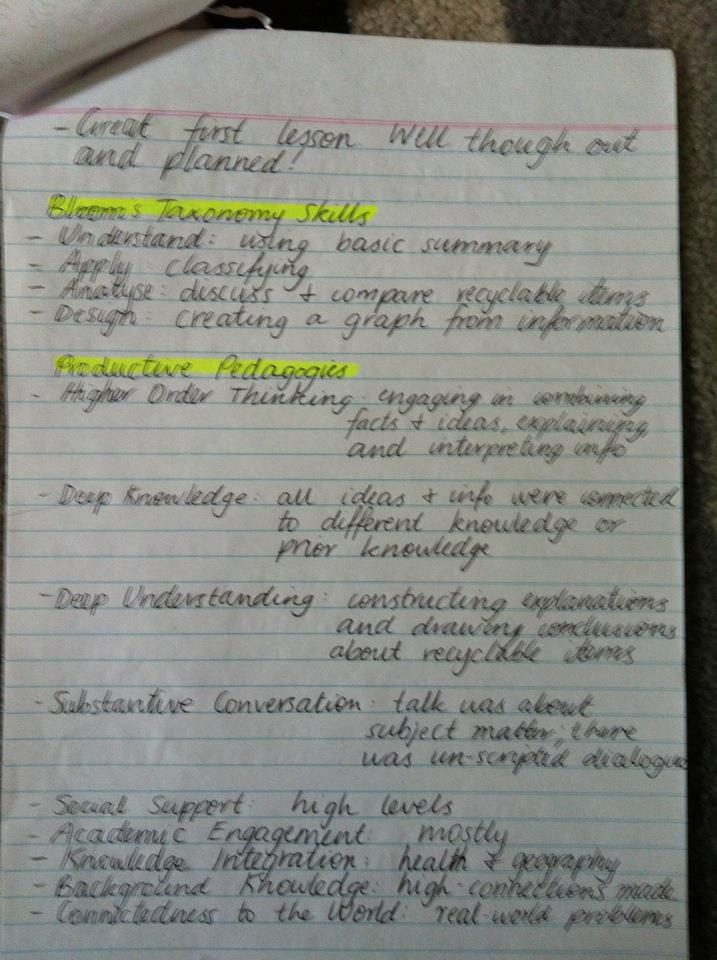 - Great first lesson. Well though out
and planned!
Bloom's Taxonomy Skills
- Understand: using basic summary
- Apply: classifying
- Analyse: discuss & compare recyclable items
- Design: creating a graph from information
Productive Pedagogies
- Higher Order Thinking: engaging in combining
facts & ideas, explaining,
and interpreting info
- Deep Knowledge: all ideas & info were connected
to different knowledge or
prior knowledge
- Deep Understanding: constructing explanations
and drawing conclusions
about recyclable items
- Substantive Conversation: talk was about
subject matter; there
was un-scripted dialogue
- Social Support: high levels
- Academic Engagement: mostly
- Knowledge Integration: health & geography
- Background Knowledge: high-connections made
- Connectedness to the World: real-world problems